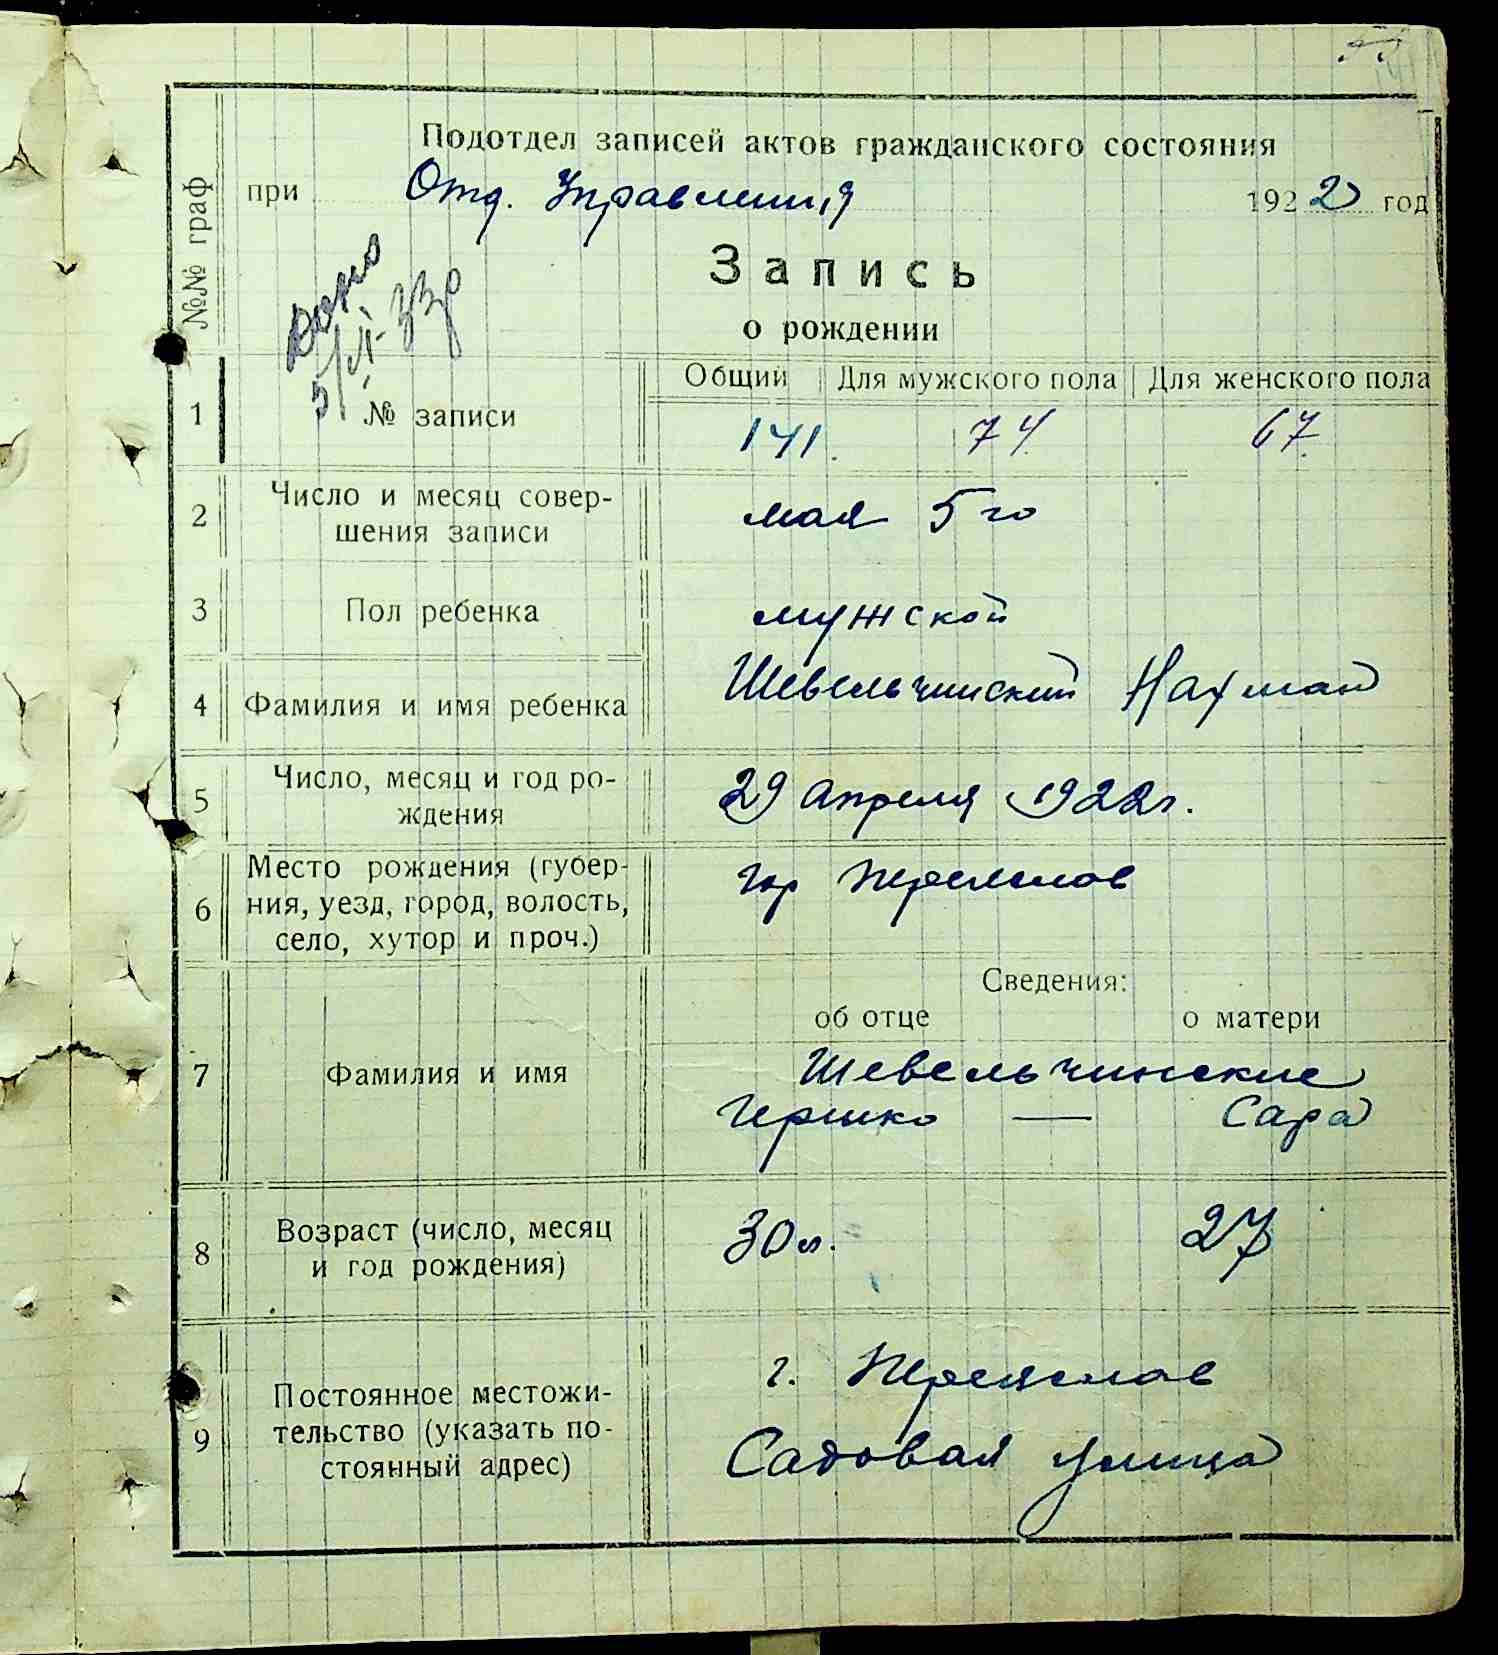 Подотдел записей актов гражданского состояния
при Отд. Управления 1922 год
№№ граф
Запись
о рождении
Дано
5/II-33р
Общий Для мужского пола Для женского пола
1 № записи 141. 74. 67.
2 Число и месяц совер-
шения записи мая 5го
3 Пол ребенка мужской
4 Фамилия и имя ребенка Шевельчинский Нахман
5 Число, месяц и год ро-
ждения 29 апреля 1922г.
6 Место рождения (губер-
ния, уезд, город, волость,
село, хутор и проч.) гор Переяслав
Сведения:
об отце о матери
7 Фамилия и имя Шевельчинские
Гершко — Сара
8 Возраст (число, месяц
и год рождения) 30 л. 27
9 Постоянное местожи-
тельство (указать по-
стоянный адрес) г. Переяслав
Садовая улица